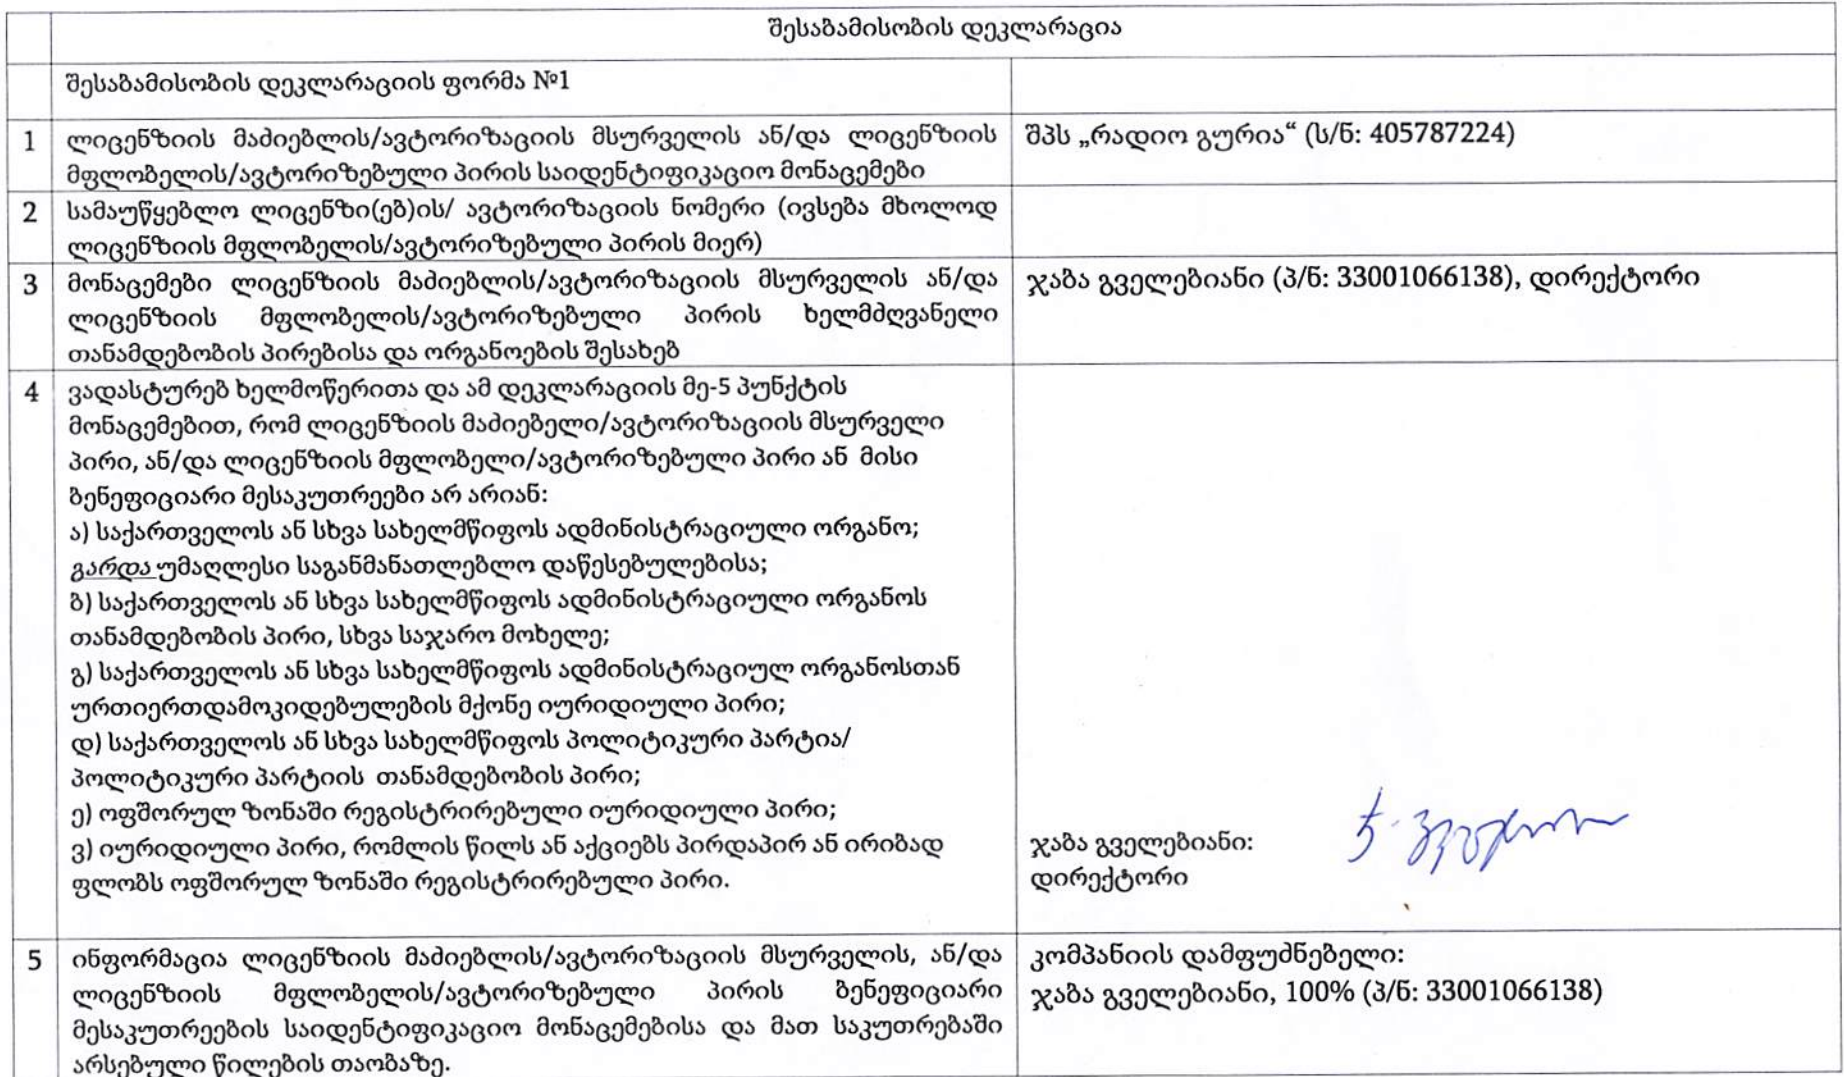 შესაბამისობის დეკლარაცია
შესაბამისობის დეკლარაციის ფორმა №1
1 ლიცენზიის მაძიებლის/ავტორიზაციის მსურველის ან/და ლიცენზიის
მფლობელის/ავტორიზებული პირის საიდენტიფიკაციო მონაცემები
შპს „რადიო გურია“ (ს/ნ: 405787224)
2 სამაუწყებლო ლიცენზი(ებ)ის/ ავტორიზაციის ნომერი (ივსება მხოლოდ
ლიცენზიის მფლობელის/ავტორიზებული პირის მიერ)
3 მონაცემები ლიცენზიის მაძიებლის/ავტორიზაციის მსურველის ან/და
ლიცენზიის მფლობელის/ავტორიზებული პირის ხელმძღვანელი
თანამდებობის პირებისა და ორგანოების შესახებ
ჯაბა გველებიანი (პ/ნ: 33001066138), დირექტორი
4 ვადასტურებ ხელმოწერითა და ამ დეკლარაციის მე-5 პუნქტის
მონაცემებით, რომ ლიცენზიის მაძიებელი/ავტორიზაციის მსურველი
პირი, ან/და ლიცენზიის მფლობელი/ავტორიზებული პირი ან მისი
ბენეფიციარი მესაკუთრეები არ არიან:
ა) საქართველოს ან სხვა სახელმწიფოს ადმინისტრაციული ორგანო;
გარდა უმაღლესი საგანმანათლებლო დაწესებულებისა;
ბ) საქართველოს ან სხვა სახელმწიფოს ადმინისტრაციული ორგანოს
თანამდებობის პირი, სხვა საჯარო მოხელე;
გ) საქართველოს ან სხვა სახელმწიფოს ადმინისტრაციულ ორგანოსთან
ურთიერთდამოკიდებულების მქონე იურიდიული პირი;
დ) საქართველოს ან სხვა სახელმწიფოს პოლიტიკური პარტია/
პოლიტიკური პარტიის თანამდებობის პირი;
ე) ოფშორულ ზონაში რეგისტრირებული იურიდიული პირი;
ვ) იურიდიული პირი, რომლის წილს ან აქციებს პირდაპირ ან ირიბად
ფლობს ოფშორულ ზონაში რეგისტრირებული პირი.
ჯაბა გველებიანი:
დირექტორი
5 ინფორმაცია ლიცენზიის მაძიებლის/ავტორიზაციის მსურველის, ან/და
ლიცენზიის მფლობელის/ავტორიზებული პირის ბენეფიციარი
მესაკუთრეების საიდენტიფიკაციო მონაცემებისა და მათ საკუთრებაში
არსებული წილების თაობაზე.
კომპანიის დამფუძნებელი:
ჯაბა გველებიანი, 100% (პ/ნ: 33001066138)